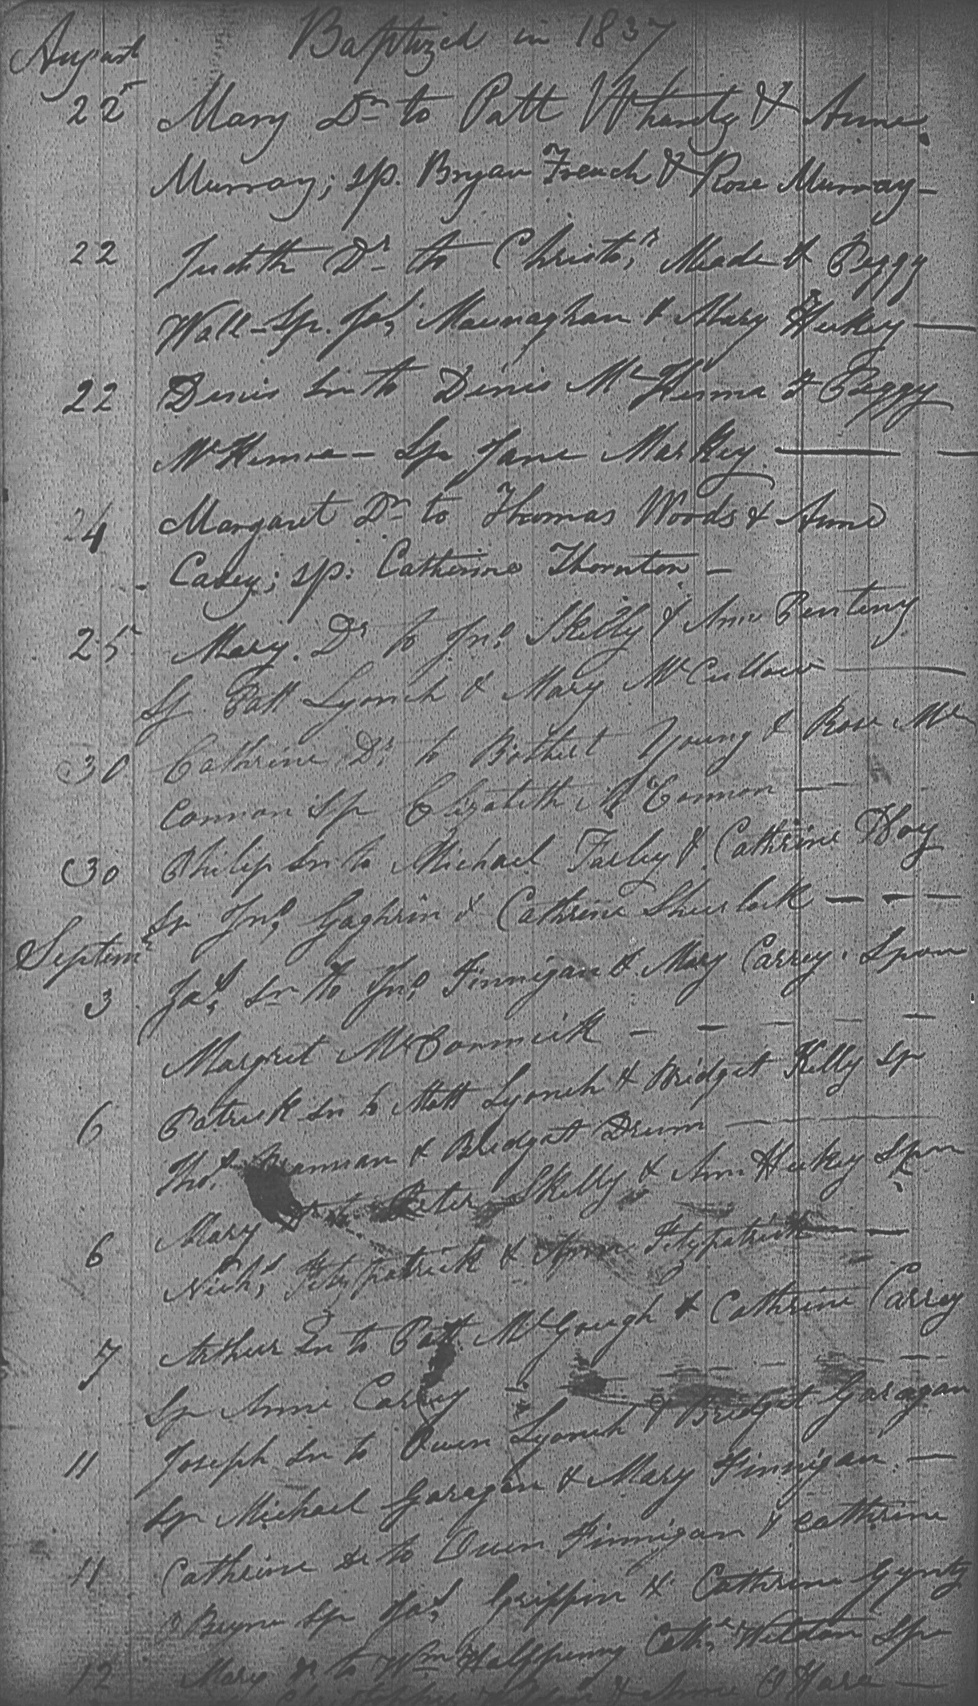 August Baptized in 1837
22 Mary Dr to Patt & Anne
Murray; sp. Bryan French & Rose Murray —
22 Judith Dr to Christr Meade & Peggy
Wall - Sp. Jas Mounaghan & Mary Heekey —
22 Denis Sn to Denis Mc & Peggy
Sp Jane Markey —
24 Margaret Dr to Thomas Woods & Anne
Casey; sp: Catherine Thornton —
25 Mary. Dr to Jno Skelly & Ann Penteny
Sp Patt Lyonch & Mary McCullow —
30 Cathrine Dr to Young & Rose Mc
Connon Sp Elizabeth McConnon —
30 Philip Sn to Michael Farley & Cathrine Hoy
Sp Jno Gaghrin & Cathrine Sheerlock — — —
Septemr
3 Jas Sn to Jno Finnigan & Mary Carrey. Spon
Margret McCormick — — — — —
6 Patrick Sn to Matt Lyonch & Bridget Kelly Sp
Thos Brannan & Bridgett Drum —
6 Mary Dr to Peter Skelly & Ann Heekey Spn
Nichs Fitzpatrick & Ann Fitzpatrick —
7 Arthur Sn to Patt McGough & Cathrine Carrey
Sp Anne Carrey —
11 Joseph Sn to Owen Lyonch & Bridget Garagan
Sp Michael Garagan & Mary Finnigan. —
11 Cathrine Dr to Owen Finnigan & Cathrine
O Bryne Sp Jas Griffin & Cathrine Gynty
12 Mary Dr to Wm Halfpenny Cathr Weldon Sp
Christopher & Anne O Hara —